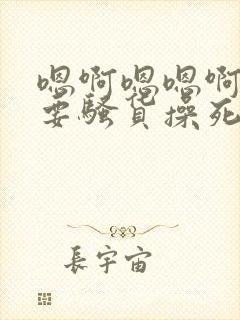 嗯啊嗯嗯啊
要骚货操死
長宇宙